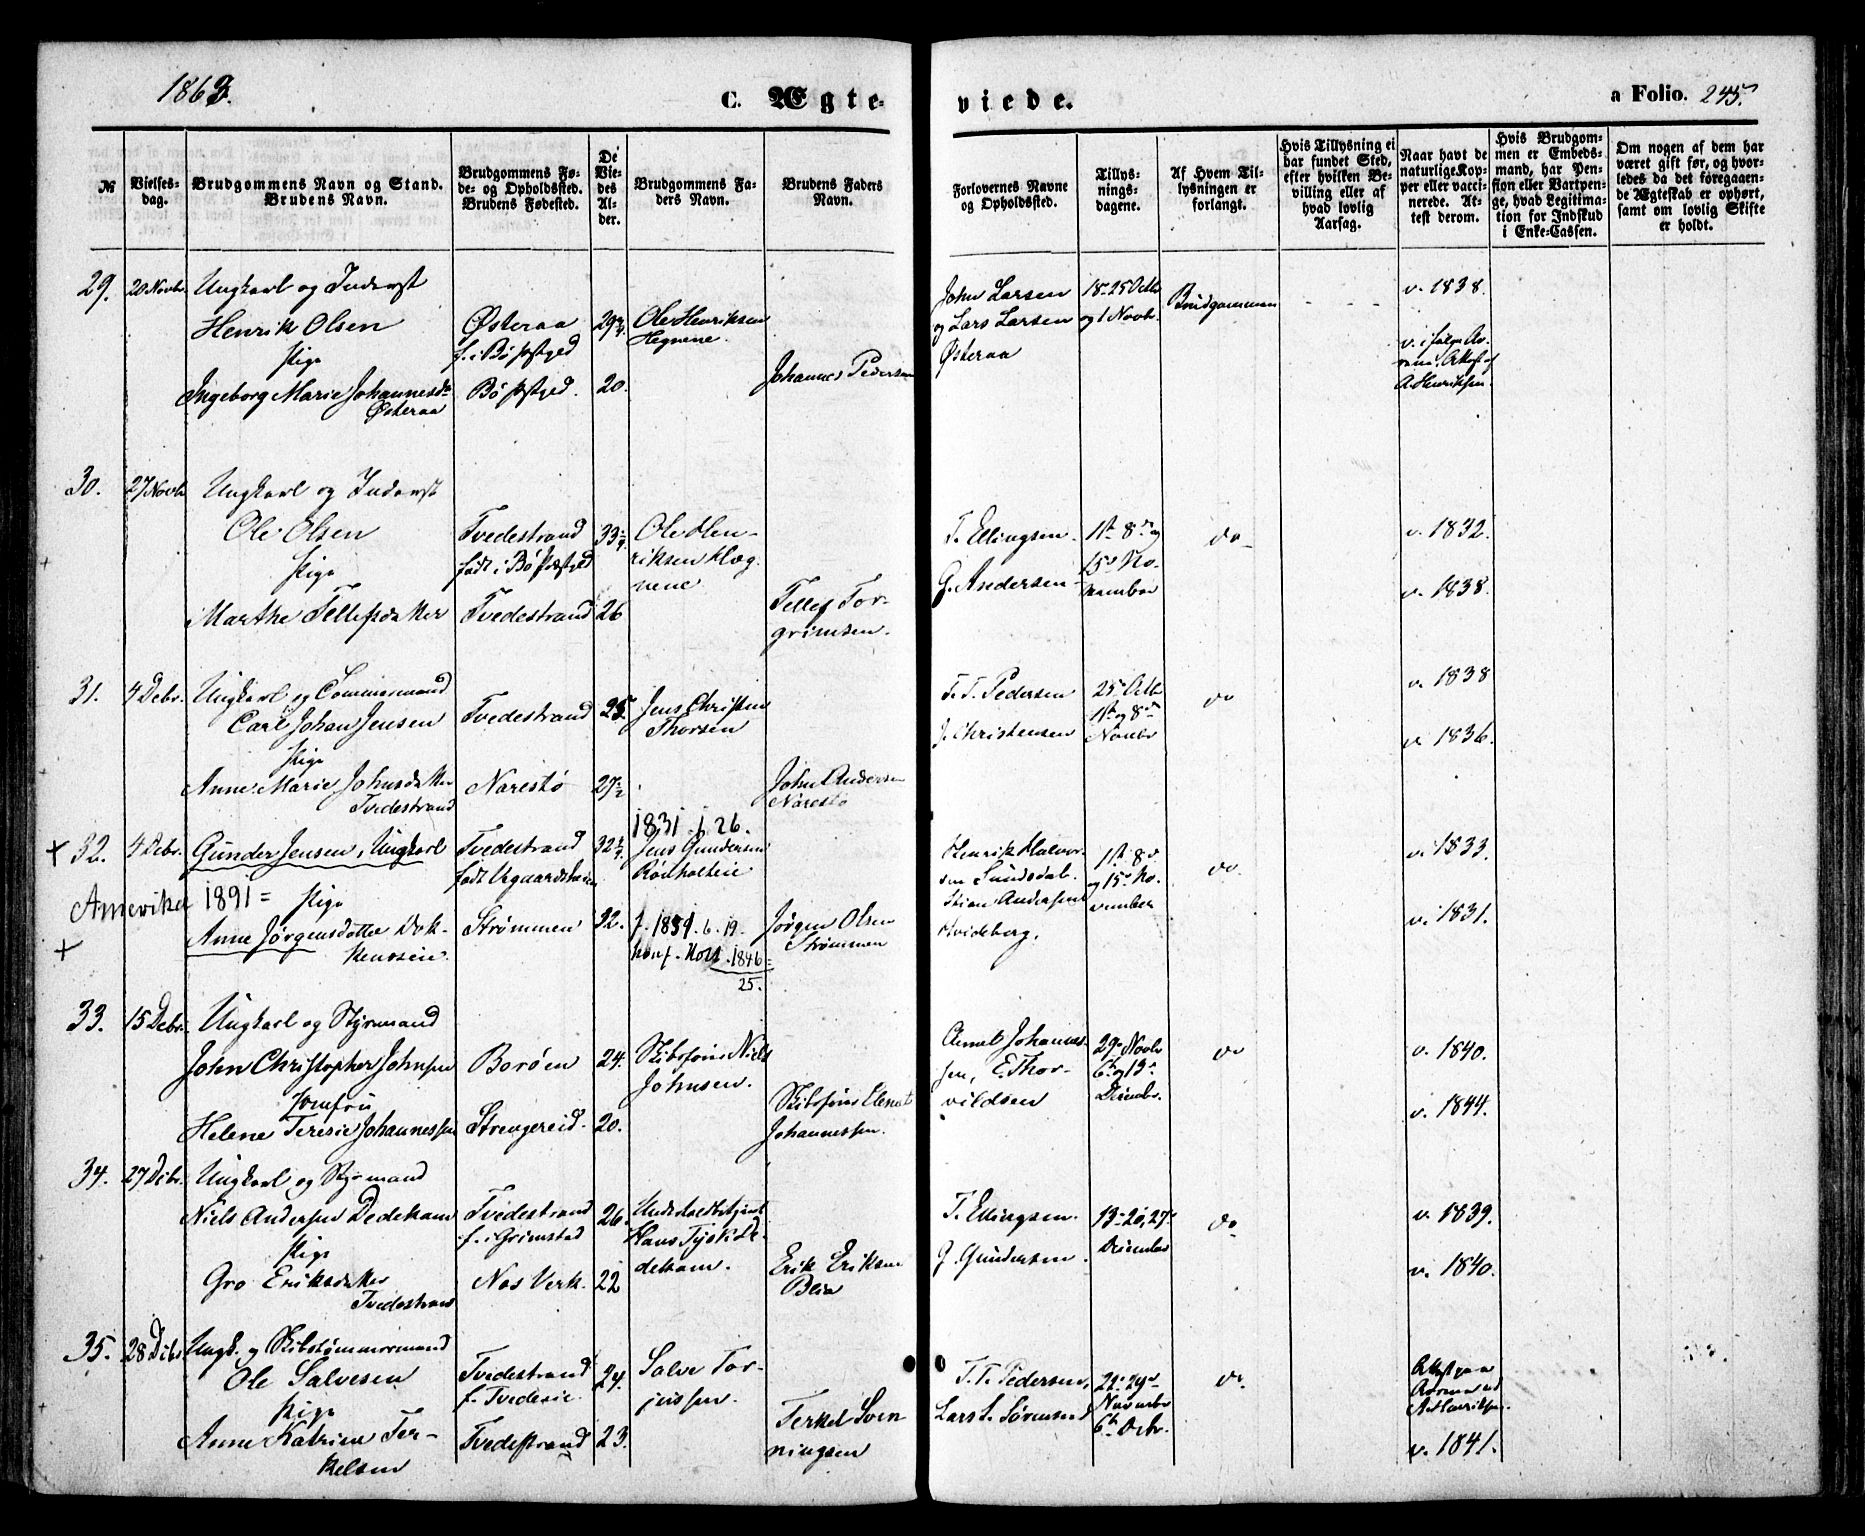 1863.
C. Ægte-
viede.
a Folio. 245.
№
Vielses-
dag.
Brudgommens Navn og Stand.
Brudens Navn.
Brudgommens Fø-
de- og Opholdssted.
Brudens Fødested.
De
Vie-
des
Al-
der.
Brudgommens Fa-
ders Navn.
Brudens Faders
Navn.
Forlovernes Navne
og Opholdssted.
Tillys-
nings-
dagene.
Af Hvem Til-
lysningen er
forlangt.
Hvis Tillysning ei
har fundet Sted,
efter hvilken Be-
villing eller af
hvad lovlig
Aarsag.
Naar havt de
naturlige Kop-
per eller vacci-
nerede. At-
test derom.
Hvis Brudgom-
men er Embeds-
mand, har Pen-
sion eller Vartpen-
ge, hvad Legitima-
tion for Indskud
i Enke-Cassen.
Om nogen af dem har
været gift før, og hvor-
ledes da det foregaaen-
de Ægteskab er ophørt,
samt om lovlig Skifte
er holdt.
29.
20 Novbr.
Ungkarl og Inderst
Henrik Olsen
Pige
Ingeborg Marie Johannesd.
Østeraa
Østeraa
f. i Bø Præstgjed
Bø Præstgjed.
29
20.
Ole Henriksen
Hegnene
Johannes Pedersen
John Larsen
og Lars Larsen
Østeraa
18-25 Octb
og 1 Novbr.
Brudgommen
v. 1838.
v. i følge
Attest af
A. Henriksen.
30.
27 Novbr
Ungkarl og Inderst
Ole Olsen
Pige
Marthe Tellefsdatter
Tvedestrand
født i Bø Præstgjed
Tvedestrand
33
26
Ole Hen-
riksen Hæg-
nene
Tellef Tor-
grimsen.
T. Ellingsen.
G. Andersen
1ste 8de og
15de No-
vember
do
v. 1832.
v. 1838.
31.
4 Debr.
Ungkarl og Tømmermand
Carl Johan Jensen
Pige
Anne Marie Johnsdatter
Tvedestrand
Tvedestrand
Narestø
25
27
Jens Christen
Thorsen
John Andersen
Narestø
T. T. Pedersen
J. Christensen
25de Octb
1ste og 8de
Novbr
do
v. 1838
v. 1836.
+ 32.
4 Debr.
Gunder Jensen, Ungkarl
1891 = Pige
Amerika
+
Anne Jørgensdatter Dok-
Tvedestrand
Strømmen
32
32.
1831. 1. 26.
Jens Gundersen
f. 1831. 6. 19.
konf. 1846 =
25.
Jørgen Olsen
Strømmen
Henrik Halvor-
sen Sundsdal.
Stian Andersen
Hvideberg.
1ste 8de
og 15de No-
vember
do.
v. 1833.
v. 1831.
33.
15 Debr.
Ungkarl og Styrmand
John Christopher Johnsen
Jomfru
Helene Teresie Johannessen
Borøen
Strengereid.
24.
20.
Skibsfører Niels
Johnsen.
Skibsfører Clemet
Johannessen.
Clemet Johannes-
sen, E. Thor-
vildsen
29de Novbr
6te og 13de
Decembr.
do
v. 1840.
v. 1844.
34.
27 Debr.
Ungkarl og Styrmand
Niels Andersen Dedekam
Pige
Gro Eriksdatter
Tvedestrand
Tvedestrand
f. i Grimstad
Nes Verk.
26.
22
Hans Tysk De-
dekam.
Erik Eriksen
T. Ellingsen.
G. Gundersen.
13de 20, 27de
December
do
v. 1839.
v. 1840.
35.
28 Debr.
Ungk. og Skibstømmermand
Ole Salvesen
Pige
Anne Katrine Ter-
kelsen
Tvedestrand
Tvedestrand
24.
23.
Salve Tor-
jussen.
Terkel Søn
ningsen
T. T. Pedersen,
Lars S. Sørensen
22de 29de
November
6te Debr.
do.
Attest paa
A. Henriksen.
v. 1841.